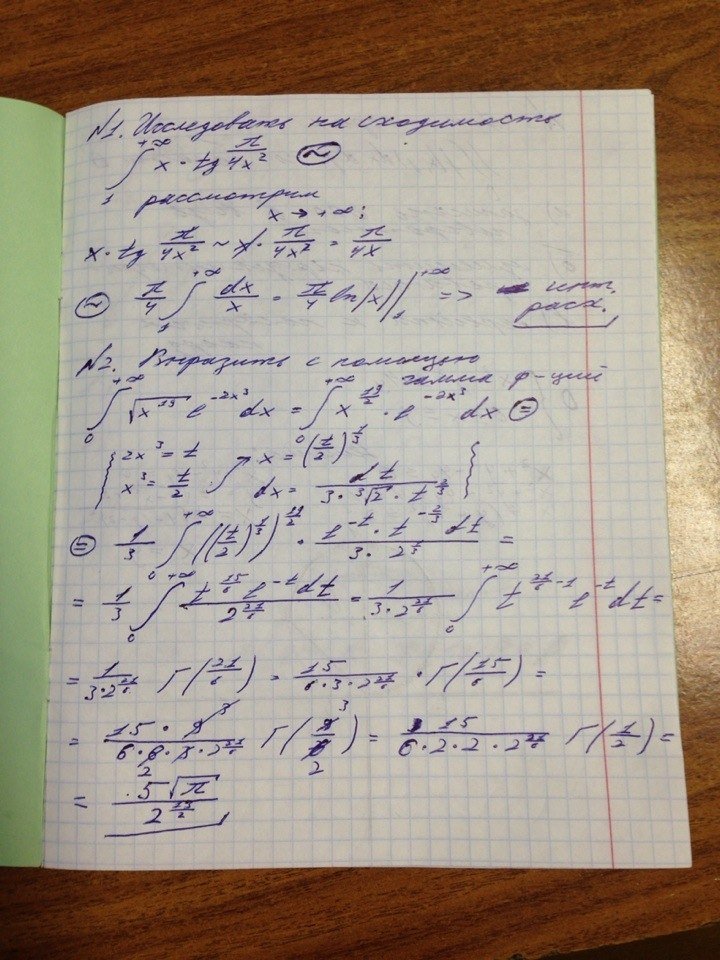 №1. Исследовать на сходимость
∫₁^{+∞} x · tg π/4x² (~)
рассмотрим
x → +∞:
x · tg π/4x² ~ x · π/4x² = π/4x
(~) π/4 ∫₁^{+∞} dx/x = π/4 ln|x| |₁^{+∞} => инт. расх.
№2. Выразить с помощью
гамма ф-ций
∫₀^{+∞} √x¹³ e^{-2x³} dx = ∫₀^{+∞} x^{13/2} · e^{-2x³} dx (=)
{ 2x³ = t → x = (t/2)^{1/3}
x³ = t/2 dx = dt / 3 · ³√2 · t^{2/3} }
(=) 1/3 ∫₀^{+∞} ((t/2)^{1/3})^{13/2} · e^{-t} · t^{-2/3} dt / 3 · 2^{1/3} =
= 1/3 ∫₀^{+∞} t^{15/6} e^{-t} dt / 2^{21/6} = 1/3·2^{21/6} ∫₀^{+∞} t^{21/6 - 1} e^{-t} dt =
= 1/3·2^{21/6} Г(21/6) = 15/6·3·2^{21/6} · Г(15/6) =
= 15 · 9 3 / 6 · 6 · 3 · 2^{21/6} 2 Г(9/6 3 2) = 15 / 6·2·2·2^{21/6} Г(1/2) =
= 5√π / 2^{13/2}